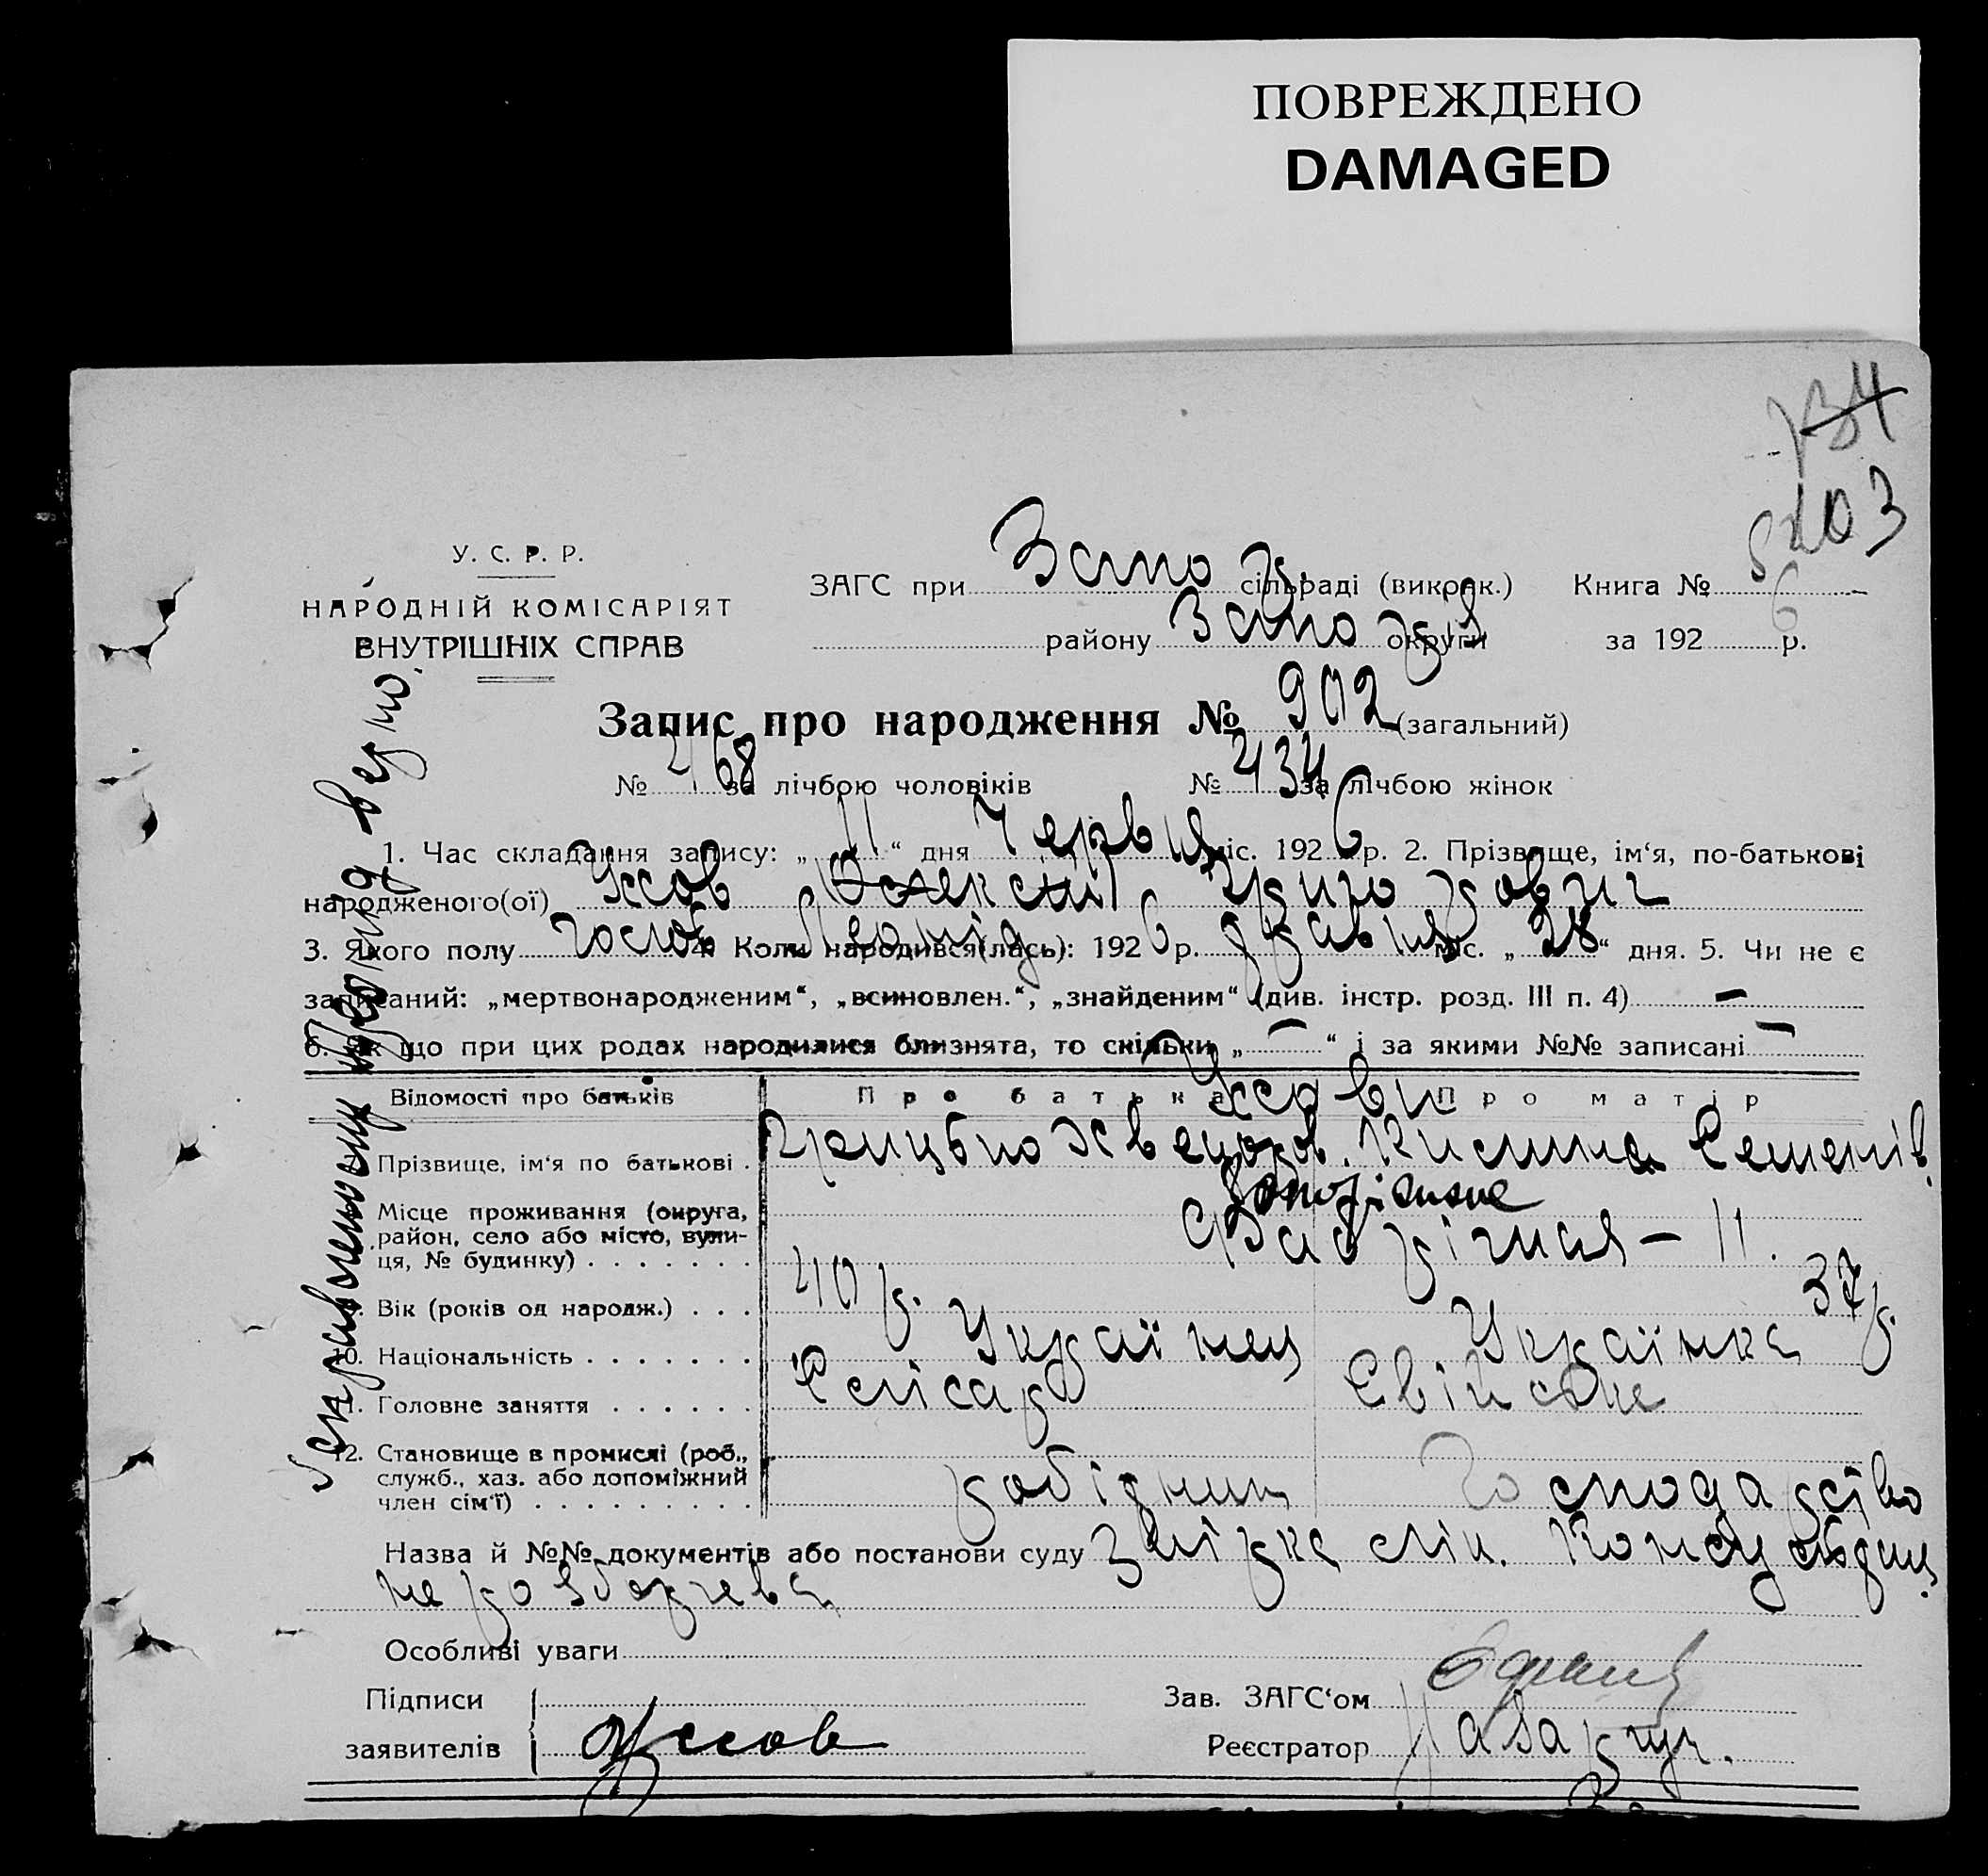 ПОВРЕЖДЕНО
DAMAGED
734
5403
У. С. Р. Р.
НАРОДНІЙ КОМІСАРІЯТ
ВНУТРІШНІХ СПРАВ
ЗАГС при Запоріз. сільраді (виконк.) Книга №
району Запоріз округи за 1926 р.
Запис про народження № 902 (загальний)
№ 468 за лічбою чоловіків № 434 за лічбою жінок
1. Час складання запису: „ 11 “ дня Червня міс. 1926 р. 2. Прізвище, ім‘я, по-батькові
народженого(ої) Усов Олексій Григорович
Леонід
3. Якого полу чолов 4. Коли народився(лась): 1926 р. травня міс. „ 28 “ дня. 5. Чи не є
записаний: „мертвонародженим“, „всиновлен.“, „знайденим“ (див. інстр. розд. III п. 4) –
6. Як що при цих родах народилися близнята, то скільки „ – “ і за якими №№ записані –
Відомості про батьків Про батька Про матір
Усови
Прізвище, ім‘я по батькові . Григорію Хведоров. Килина Семенів.
Запоріжжя
Місце проживання (округа,
район, село або місто, вули-
ця, № будинку) . . . . . . . Фабрічная – 11.
9. Вік (років од народж.) . . . 40 р. 37 р.
10. Національність . . . . . . . Українец Українка
11. Головне заняття . . . . . . Слісар Свійське
12. Становище в промислі (роб.,
служб., хаз. або допоміжний
член сім‘ї) . . . . . . . . . робідник Господарство
Назва й №№ документів або постанови суду
Особливі уваги
Підписи
заявителів Усов
Зав. ЗАГС‘ом
Реєстратор
Исправленному Леонид верно